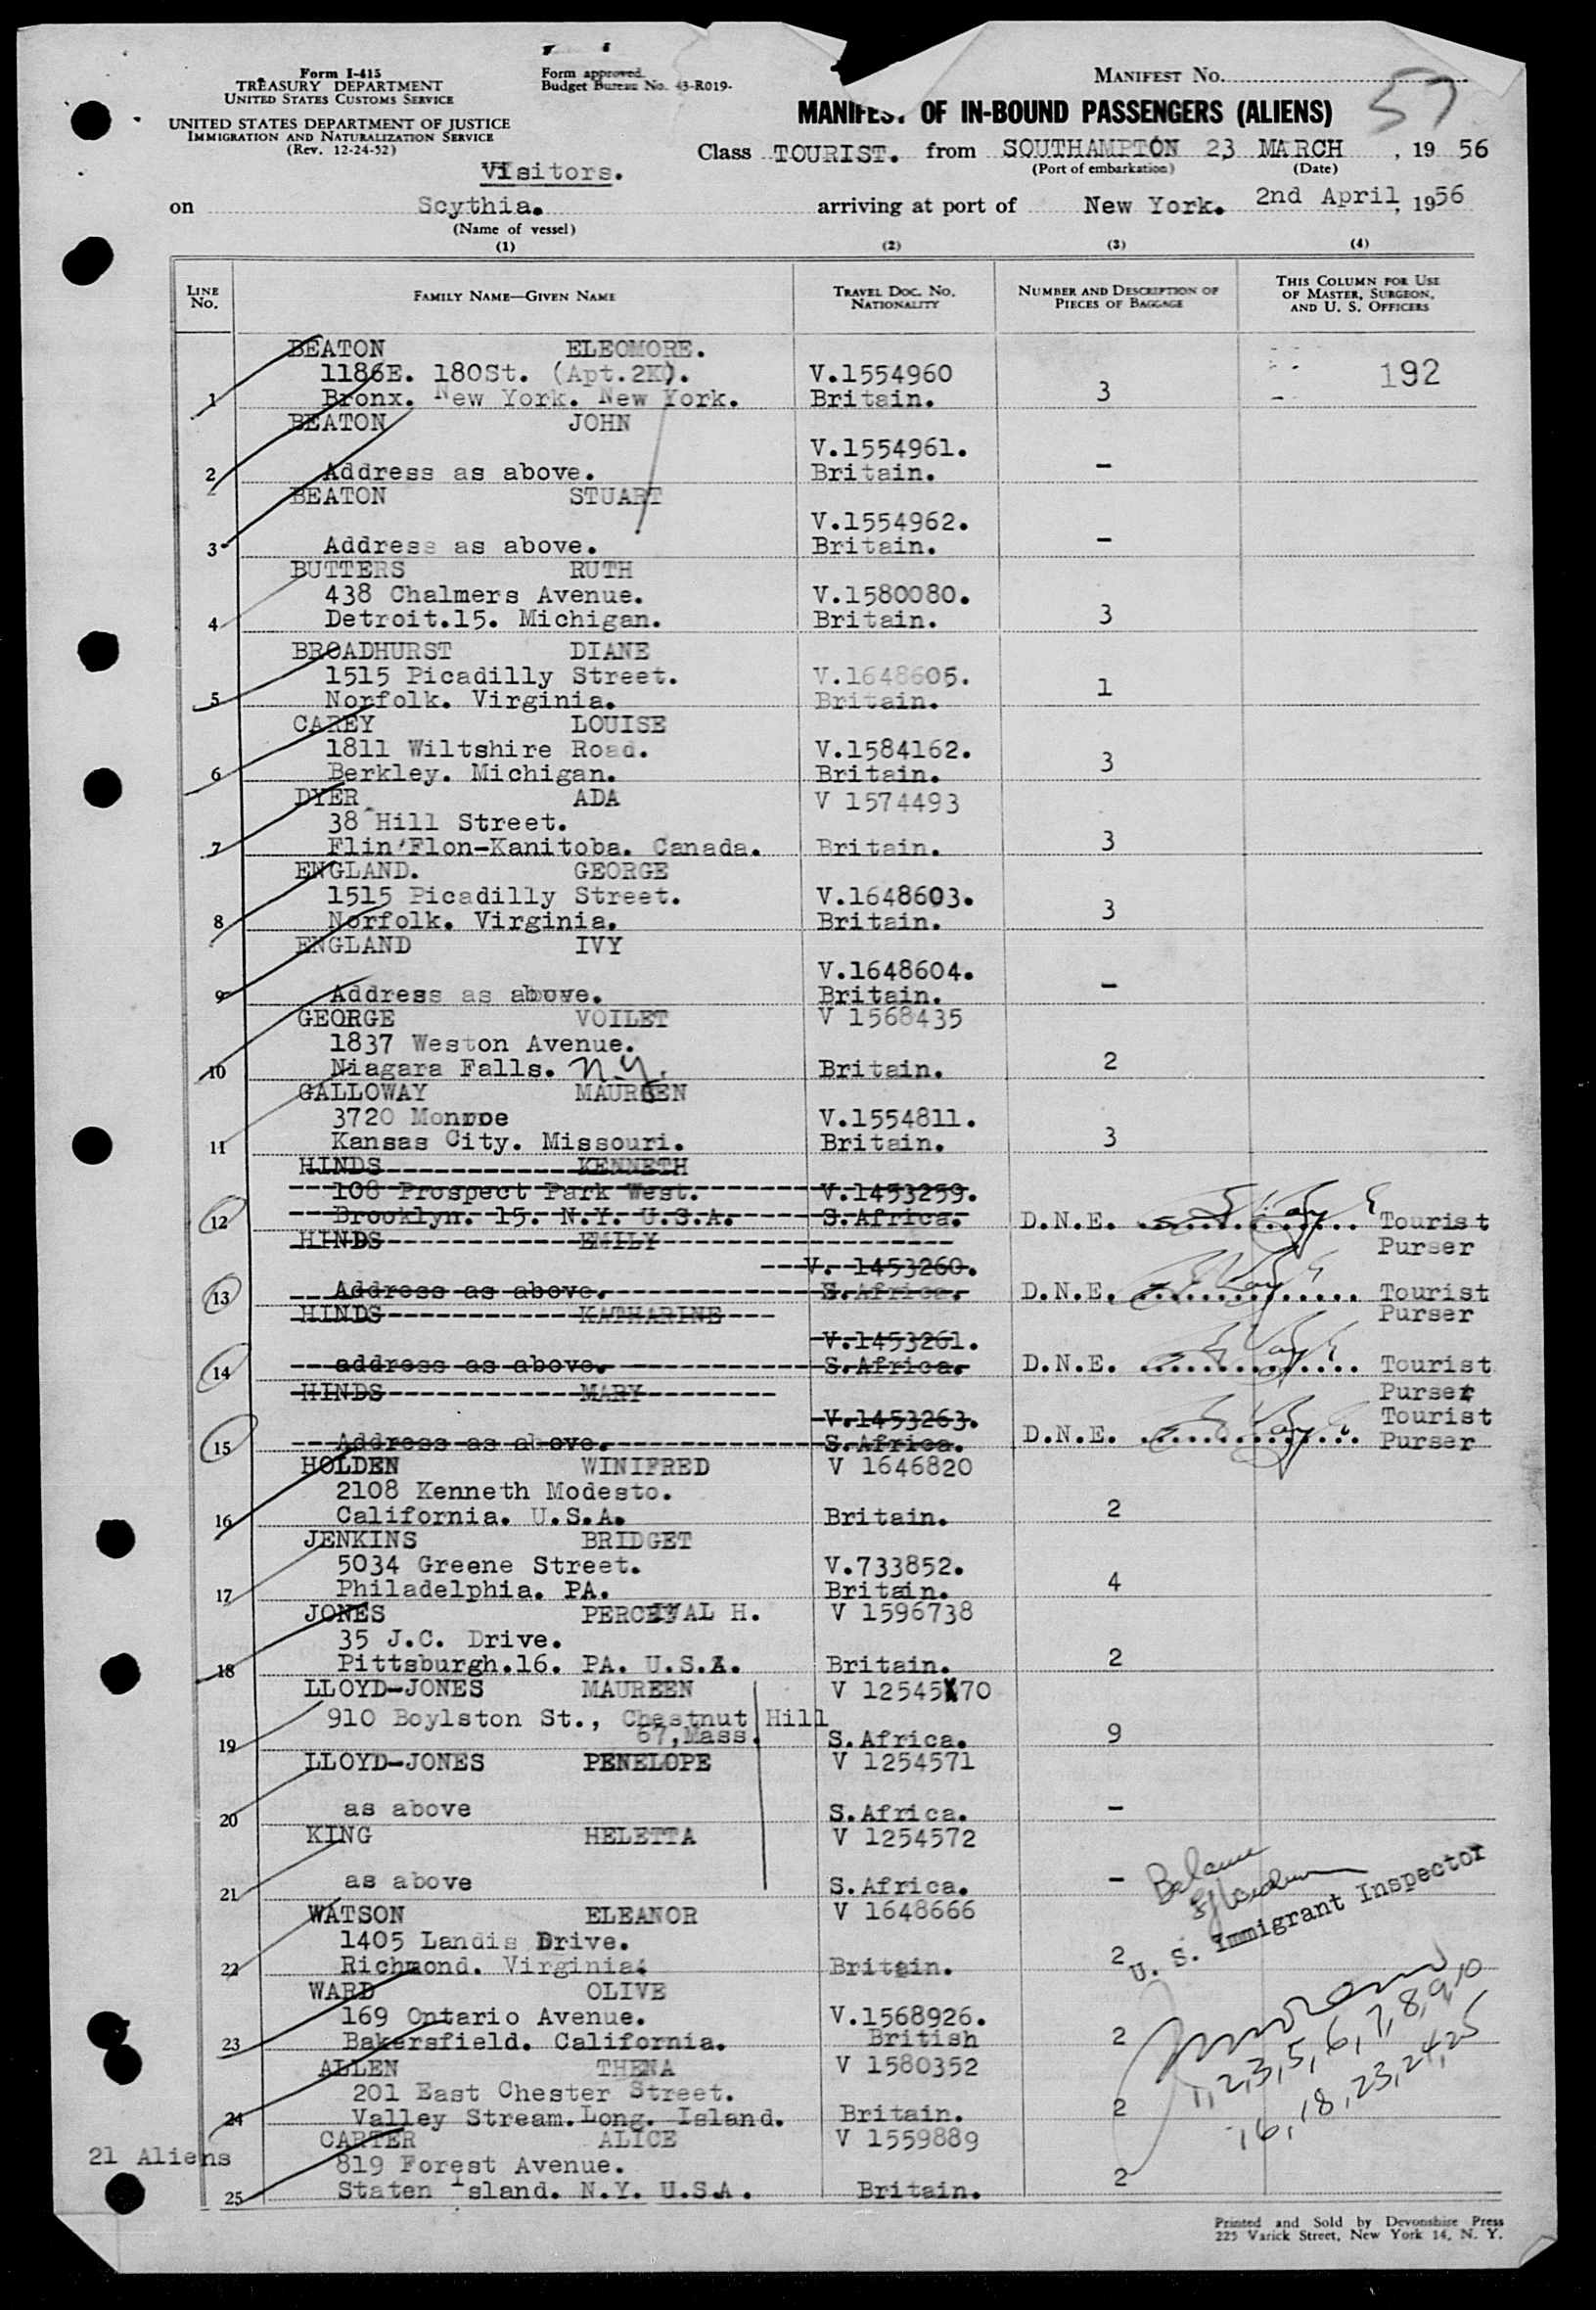 Form I-415
TREASURY DEPARTMENT
UNITED STATES CUSTOMS SERVICE
UNITED STATES DEPARTMENT OF JUSTICE
IMMIGRATION AND NATURALIZATION SERVICE
(Rev. 12-24-52)
Form approved.
Budget Bureau No. 43-R019-
MANIFEST NO.
57
MANIFEST OF IN-BOUND PASSENGERS (ALIENS)
Class TOURIST. from SOUTHAMPTON 23 MARCH , 19 56
(Port of embarkation) (Date)
Visitors.
on Scythia. arriving at port of New York. 2nd April, 1956
(Name of vessel)
(1) (2) (3) (4)
LINE NO. FAMILY NAME—GIVEN NAME TRAVEL DOC. NO. NATIONALITY NUMBER AND DESCRIPTION OF PIECES OF BAGGAGE THIS COLUMN FOR USE OF MASTER, SURGEON, AND U. S. OFFICERS
BEATON ELEOMORE.
1186E. 180St. (Apt.2K). V.1554960 192
1 Bronx. New York. New York. Britain. 3
BEATON JOHN
V.1554961.
2 Address as above. Britain. -
BEATON STUART
V.1554962.
3 Address as above. Britain. -
BUTTERS RUTH
438 Chalmers Avenue. V.1580080.
4 Detroit.15. Michigan. Britain. 3
BROADHURST DIANE
1515 Picadilly Street. V.1648605.
5 Norfolk. Virginia. Britain. 1
CAREY LOUISE
1811 Wiltshire Road. V.1584162.
6 Berkley. Michigan. Britain. 3
DYER ADA V 1574493
38 Hill Street.
7 Flin'Flon-Kanitoba. Canada. Britain. 3
ENGLAND. GEORGE
1515 Picadilly Street. V.1648603.
8 Norfolk. Virginia. Britain. 3
ENGLAND IVY
V.1648604.
9 Address as above. Britain. -
GEORGE VOILET V 1568435
1837 Weston Avenue.
10 Niagara Falls. N.Y. Britain. 2
GALLOWAY MAUREEN
3720 Monroe V.1554811.
11 Kansas City. Missouri. Britain. 3
HINDS KENNETH
108 Prospect Park West. V.1453259.
12 Brooklyn. 15. N.Y. U.S.A. S.Africa. D.N.E. Tourist
Purser
HINDS EMILY
V. 1453260.
13 Address as above. S.Africa. D.N.E. Tourist
Purser
HINDS KATHARINE
V.1453261.
14 address as above. S.Africa. D.N.E. Tourist
Purser
HINDS MARY
V.1453263. Tourist
15 Address as above. S.Africa. D.N.E. Purser
HOLDEN WINIFRED V 1646820
2108 Kenneth Modesto.
16 California. U.S.A. Britain. 2
JENKINS BRIDGET
5034 Greene Street. V.733852.
17 Philadelphia. PA. Britain. 4
JONES PERCEIVAL H. V 1596738
35 J.C. Drive.
18 Pittsburgh.16. PA. U.S.A. Britain. 2
LLOYD-JONES MAUREEN V 1254570
910 Boylston St., Chestnut Hill
67,Mass.
19 S.Africa. 9
LLOYD-JONES PENELOPE V 1254571
20 as above S.Africa. -
KING HELETTA V 1254572
21 as above S.Africa. -
Balance
U. S. Immigrant Inspector
WATSON ELEANOR V 1648666
1405 Landis Drive.
22 Richmond. Virginia. Britain. 2
WARD OLIVE
169 Ontario Avenue. V.1568926.
23 Bakersfield. California. British 2
1,2,3,5,6,7,8,9,10
16,18,23,24,25
ALLEN THENA V 1580352
201 East Chester Street.
24 Valley Stream.Long. Island. Britain. 2
CARTER ALICE V 1559889
21 Aliens
819 Forest Avenue.
25 Staten Island. N.Y. U.S.A. Britain. 2
Printed and Sold by Devonshire Press
225 Varick Street, New York 14, N. Y.